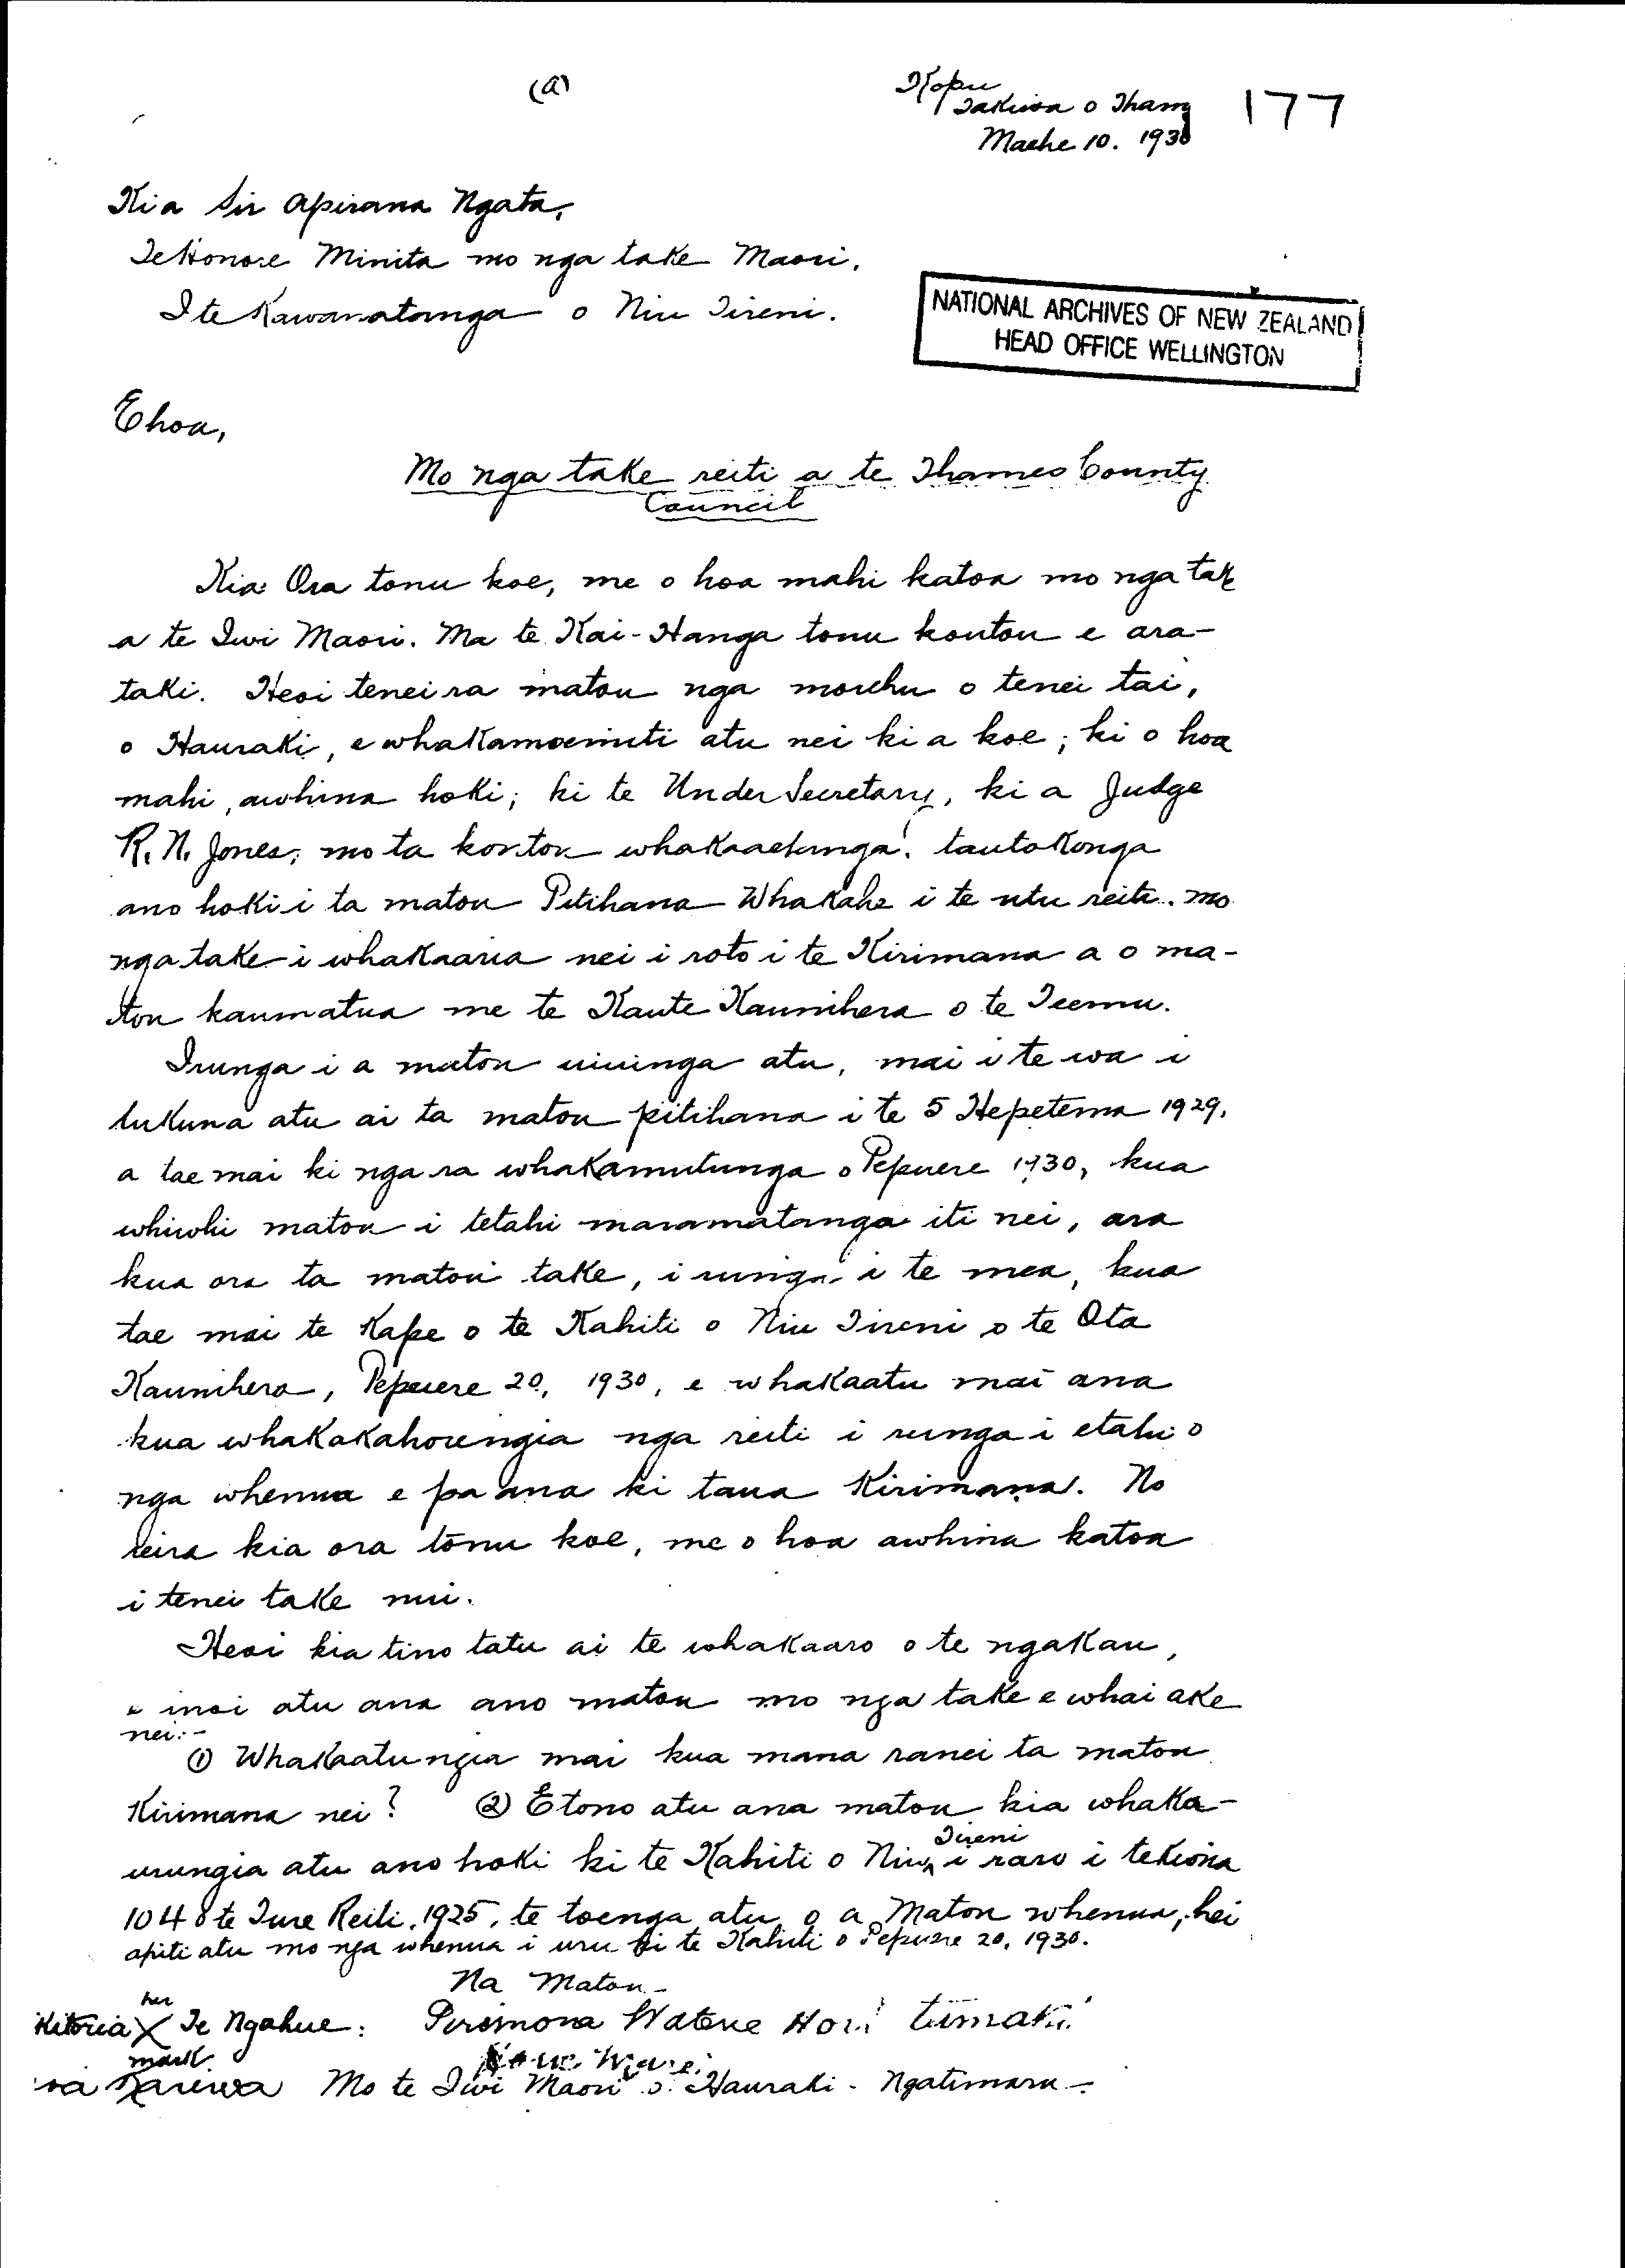 (a)
Kopu
Takiwa o Thames
Maehe 10. 1930
177
Kia Sir Apirana Ngata,
Te Honore Minita mo nga take Maori.
I te Kawanatanga o Niu Tireni.
NATIONAL ARCHIVES OF NEW ZEALAND
HEAD OFFICE WELLINGTON
E hoa,
Mo nga take reiti a te Thames County
Council
Kia Ora tonu koe, me o hoa mahi katoa mo nga take
a te Iwi Maori. Ma te Kai-Hanga tonu koutou e ara-
taki. Heoi tenei ra matou nga morehu o tenei tai,
o Hauraki, e whakamoemiti atu nei ki a koe; ki o hoa
mahi, awhina hoki; ki te Under Secretary, ki a Judge
R. N. Jones; mo ta koutou whakaaetanga, tautokonga
ano hoki i ta matou Pitihana Whakahe i te utu reiti. mo
nga take i whakaaria nei i roto i te Kirimana a o ma-
tou kaumatua me te Kaute Kaunihera o te Teemu.
Irunga i a matou uiuinga atu, mai i te wa i
tukuna atu ai ta matou pitihana i te 5 Hepetema 1929,
a tae mai ki nga ra whakamutunga o Pepuere 1930, kua
whiwhi matou i tetahi maramatanga iti nei, ara
kua ora ta matou take, i runga i te mea, kua
tae mai te Kape o te Kahiti o Niu Tireni o te Ota
Kaunihera, Pepuere 20, 1930, e whakaatu mai ana
kua whakakahorengia nga reiti i runga i etahi o
nga whenua e pa ana ki taua Kirimana. No
reira kia ora tonu koe, me o hoa awhina katoa
i tenei take nui.
Heoi kia tino tatu ai te whakaaro o te ngakau,
e inoi atu ana ano matou mo nga take e whai ake
nei:-
(1) Whakaatungia mai kua mana ranei ta matou
Kirimana nei? (2) E tono atu ana matou kia whaka-
urungia atu ano hoki ki te Kahiti o Niu Tireni i raro i tekiona
104 o te Ture Reiti, 1925, te toenga atu o a Matou whenua, hei
apiti atu mo nga whenua i uru ki te Kahiti o Pepuere 20, 1930.
Na Matou-
her
Kitoria X Te Ngahue: Perimona Watene Hori Timaki
mark
Mo te Iwi Maori o Hauraki - Ngatimaru -